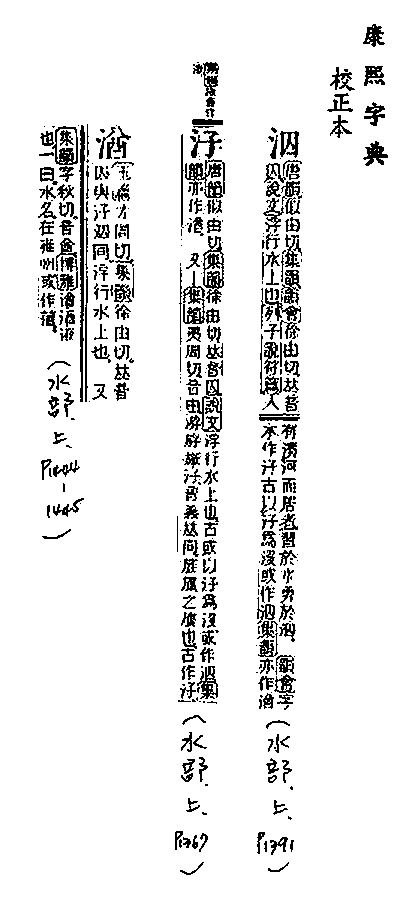 康熙字典
校正本
泅
唐韻似由切集韻韻會徐由切𠀤音
囚說文浮行水上也列子說符篇人
有濱河而居者習於水勇於泅 韻會字
本作汓古以汓爲沒或作泅集韻亦作㴒
(水部.上.P1391)
汓
唐韻似由切集韻徐由切𠀤音囚說文浮行水上也古或以汓爲沒或作泅集
韻亦作㴒 又集韻夷周切音由
旌旗之㫍也古作汓
(水部.上.P1367)
㴒
玉篇才周切集韻徐由切𠀤音
囚與汓泅同浮行水上也 又
集韻字秋切音酋博雅
也一曰水名在雍州或作
(水部.上.P1444-1445)